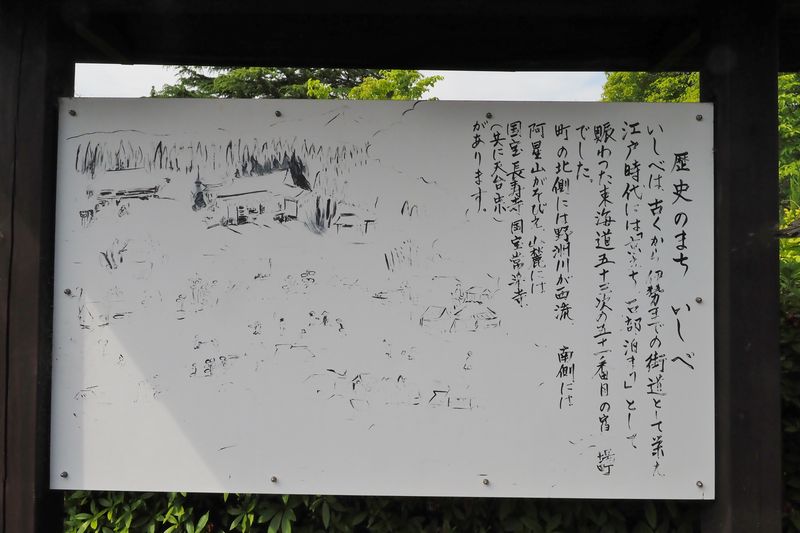 歴史のまち いしべ
いしべは、古くから伊勢までの街道として栄え
江戸時代には「京立ち石部泊まり」として
賑わった東海道五十三次の五十一番目の宿場町
でした。
町の北側には野洲川が西流 南側には
阿星山がそびえ、山麓には
国宝長寿寺国宝常楽寺
(共に天台宗)
があります。